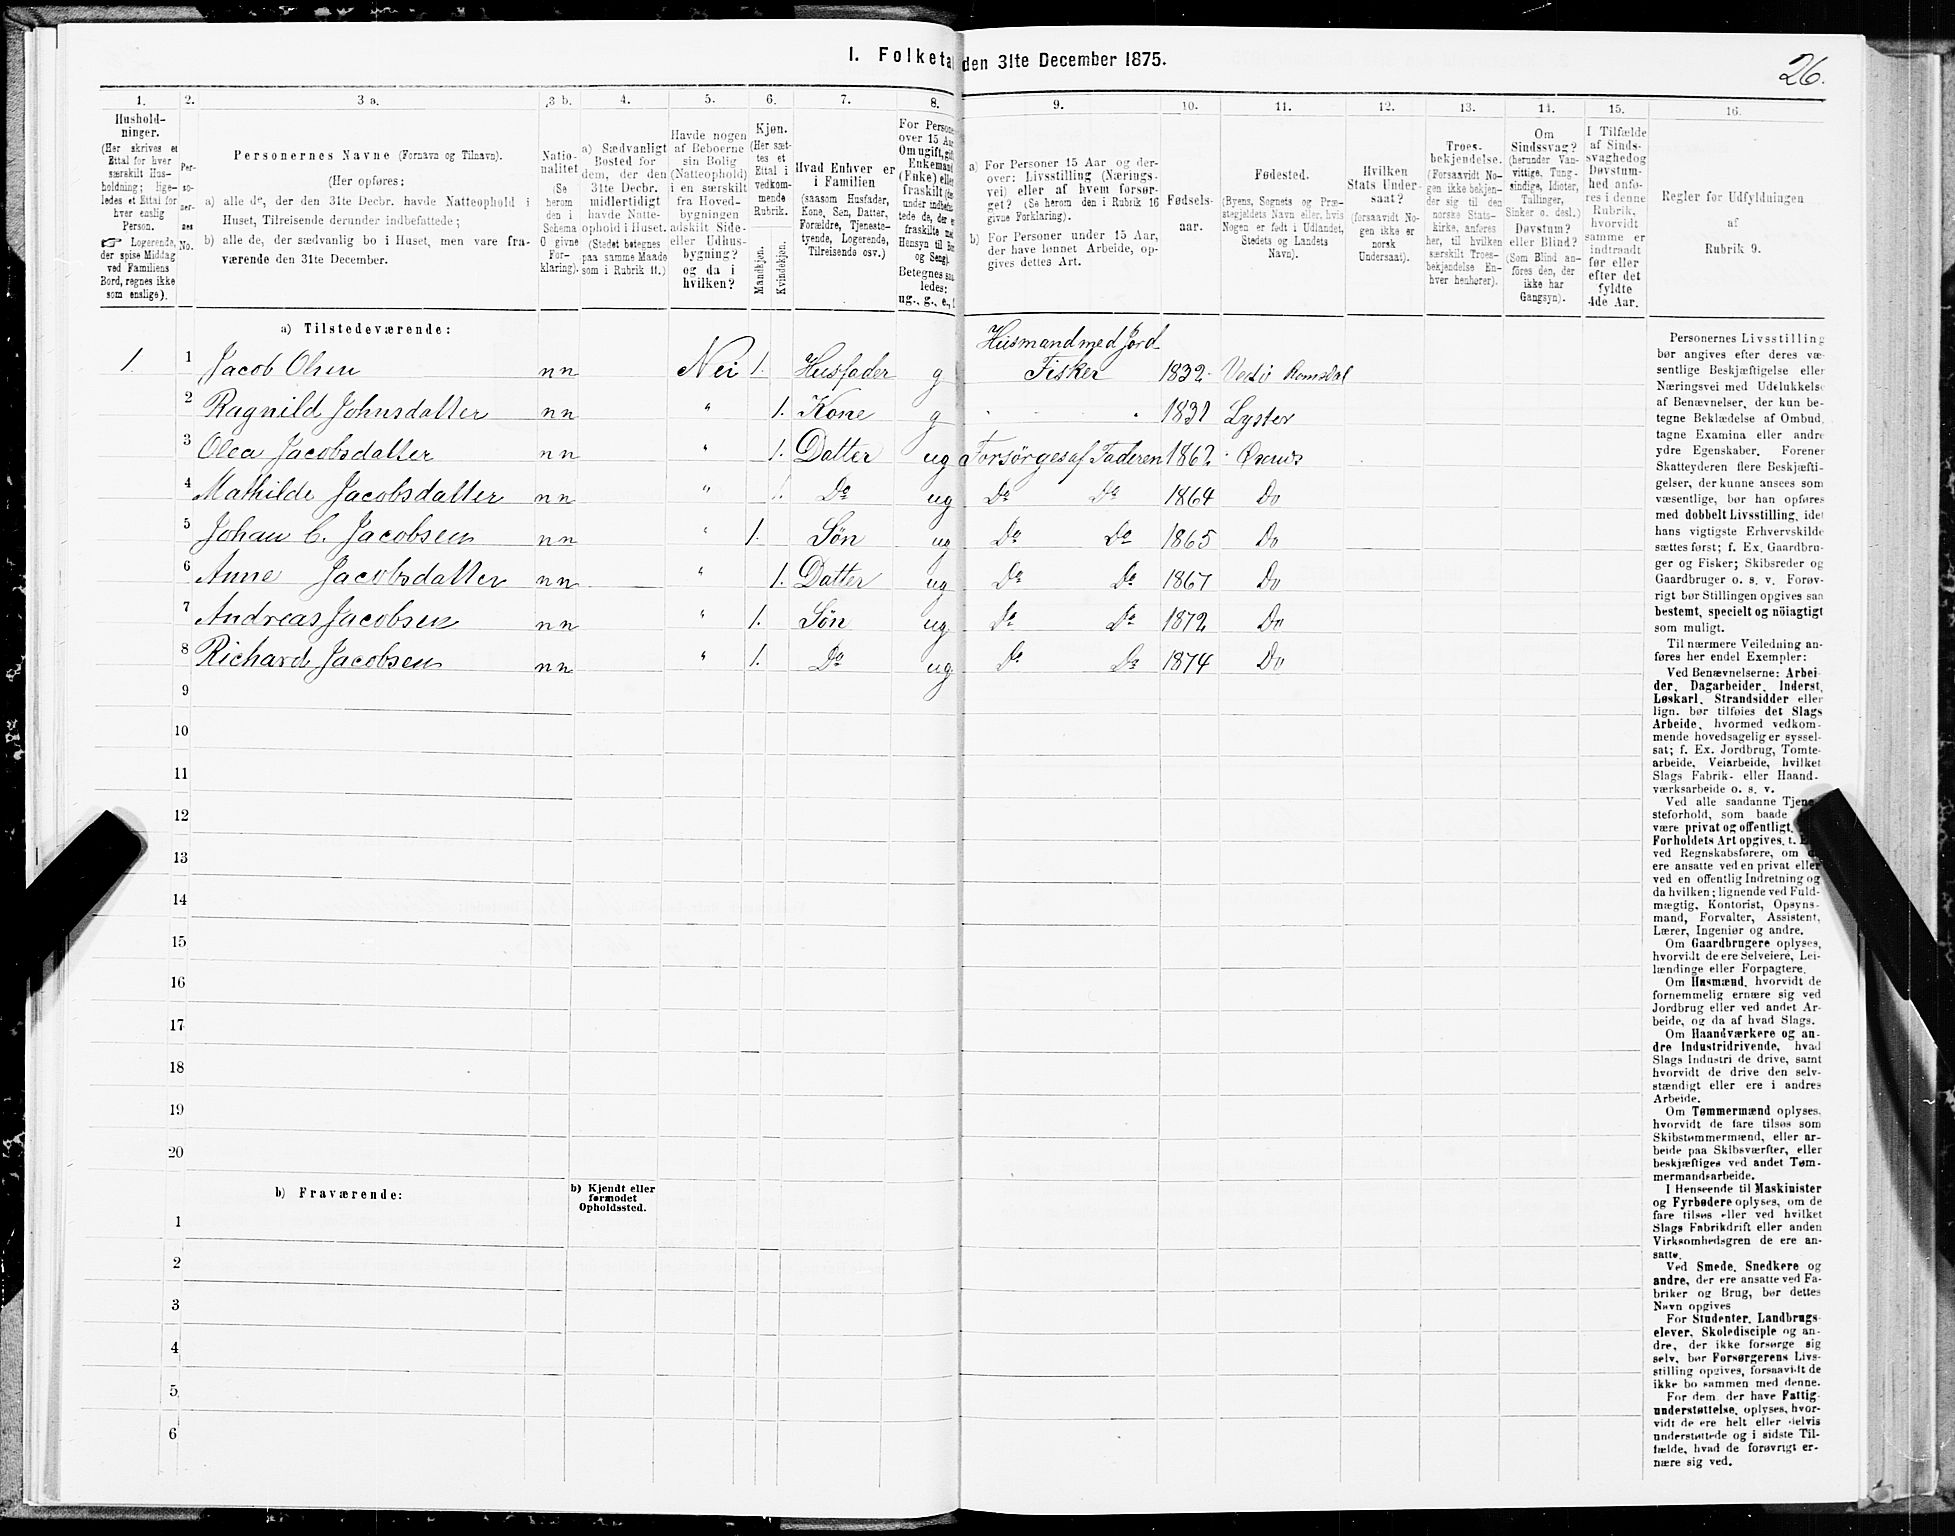 I. Folketal den 31te December 1875.
26.
1. 2. 3 a. 3 b. 4. 5. 6. 7. 8. 9. 10. 11. 12. 13. 14. 15. 16.
Hushold-
ninger.
(Her skrives et
Ettal for hver
særskilt Hus-
holdning; lige-
ledes et Ettal for
hver enslig
Person.
☞ Logerende,
der spise Middag
ved Familiens
Bord, regnes ikke
som enslige).
Per-
so-
ner-
nes
No.
Personernes Navne (Fornavn og Tilnavn).
(Her opføres:
a) alle de, der den 31te Decbr. havde Natteophold i
Huset, Tilreisende derunder indbefattede;
b) alle de, der sædvanlig bo i Huset, men vare fra-
værende den 31te December.
Natio-
nalitet
(Se
herom
den i
Schema
O givne
For-
klaring).
a) Sædvanligt
Bosted for
dem, der den
31te Decbr.
midlertidigt
havde Natte-
ophold i Huset.
(Stedet betegnes
paa samme Maade
som i Rubrik 11.)
Havde nogen
af Beboerne
sin Bolig
(Natteophold)
i en særskilt
fra Hoved-
bygningen
adskilt Side-
eller Udhus-
bygning?
og da i
hvilken?
Kjøn.
(Her sæt-
tes et
Ettal i
vedkom-
mende
Rubrik.
Mandkjøn.
Kvindekjøn.
Hvad Enhver er
i Familien
(saasom Husfader,
Kone, Søn, Datter,
Forældre, Tjeneste-
tyende, Logerende,
Tilreisende osv.)
For Persone
over 15 Aar
Om ugift, gift
Enkemand
(Enke) eller
fraskilt (de
under indbefat-
tede de, der er
fraskilte med
Hensyn til Bo
og Seng).
Betegnes saa
ledes:
ug., g., e., f
a) For Personer 15 Aar og der-
over: Livsstilling (Nærings-
vei) eller af hvem forsør-
get? (Se herom den i Rubrik 16
givne Forklaring).
b) For Personer under 15 Aar,
der have lønnet Arbeide, op-
gives dettes Art.
Fødsels-
aar.
Fødested.
(Byens, Sognets og Præ-
stegjeldets Navn eller, hvis
Nogen er født i Udlandet,
Stedets og Landets
Navn).
Hvilken
Stats Under-
saat?
(forsaavidt No-
gen ikke er
norsk
Undersaat).
Troes-
bekjendelse.
(Forsaavidt No-
gen ikke bekjen-
der sig til den
norske Stats-
kirke, anføres
her, til hvilken
særskilt Troes-
bekjendelse En-
hver henhører).
Om
Sindssvag?
(herunder Van-
vittige, Tung-
sindige, Idioter,
Tallinger,
Sinker o. desl.)
Døvstum?
eller Blind?
(Som Blind an-
føres den, der
ikke har
Gangsyn).
I Tilfælde
af Sinds-
svaghed og
Døvstum-
hed anfø-
res i denne
Rubrik,
hvorvidt
samme er
indtraadt
før eller
efter det
fyldte
4de Aar.
Regler for Udfyldningen
af
Rubrik 9.
a) Tilstedeværende:
Husmand med Jord
1. 1 Jacob Olsen nn Nei 1. Husfader g Fisker 1832 Vedø Romsdal
2 Ragnild Johnsdatter nn " 1. Kone g 1831 Lyster
3 Olea Jacobsdatter nn " 1. Datter ug Forsørges af Faderen 1862
4 Mathilde Jacobsdatter nn " 1. Do ug Do Do 1864 Do
5 Johan C. Jacobsen nn " 1. Søn ug Do Do 1865 Do
6 Anne Jacobsdatter nn " 1. Datter ug Do Do 1867 Do
7 Andreas Jacobsen nn " 1. Søn ug Do Do 1872 Do
8 Richard Jacobsen nn " 1. Do ug Do Do 1874 Do
9
10
11
12
13
14
15
16
17
18
19
20
b) Fraværende:
b) Kjendt eller
formodet
Opholdssted.
1
2
3
4
5
6
Personernes Livsstilling
bør angives efter deres væ-
sentlige Beskjæftigelse eller
Næringsvei med Udelukkelse
af Benævnelser, der kun be-
tegne Beklædelse af Ombud,
tagne Examina eller andre
ydre Egenskaber. Forener
Skatteyderen flere Beskjæfti-
gelser, der kunne ansees som
væsentlige, bør han opføres
med dobbelt Livsstilling, idet
hans vigtigste Erhvervskilde
sættes først; f. Ex. Gaardbru-
ger og Fisker; Skibsreder og
Gaardbruger o. s. v. Forøv-
rigt bør Stillingen opgives saa
bestemt, specielt og nöiagtigt
som muligt.
Til nærmere Veiledning an-
føres her endel Exempler:
Ved Benævnelserne: Arbei-
der, Dagarbeider, Inderst,
Løskarl, Strandsidder eller
lign. bør tilføies det Slags
Arbeide, hvormed vedkom-
mende hovedsagelig er syssel-
sat; f. Ex. Jordbrug, Tomte-
arbeide, Veiarbeide, hvilket
Slags Fabrik- eller Haand-
værksarbeide o. s. v.
Ved alle saadanne Tjene-
steforhold, som baade
være privat og offentligt,
Forholdets Art opgives, t. E
ved Regnskabsførere, om d
ere ansatte ved en privat eller
ved en offentlig Indretning og
da hvilken; lignende ved Fuld-
mægtig, Kontorist, Opsyns-
mand, Forvalter, Assistent,
Lærer, Ingeniør og andre.
Om Gaardbrugere oplyses,
hvorvidt de ere Selveiere, Lei-
lændinge eller Forpagtere.
Om Husmænd, hvorvidt de
fornemmelig ernære sig ved
Jordbrug eller ved andet Ar-
beide, og da af hvad Slags.
Om Haandværkere og an-
dre Industridrivende, hvad
Slags Industri de drive, samt
hvorvidt de drive den selv-
stændigt eller ere i andres
Arbeide.
Om Tømmermænd oplyses,
hvorvidt de fare tilsøs som
Skibstømmermænd, eller ar-
beide paa Skibsværfter, eller
beskjæftiges ved andet Tøm-
mermandsarbeide.
I Henseende til Maskinister
og Fyrbødere oplyses, om de
fare tilsøs eller ved hvilket
Slags Fabrikdrift eller anden
Virksomhedsgren de ere an-
satte.
Ved Smede, Snedkere og
andre, der ere ansatte ved Fa-
briker og Brug, bør dettes
Navn opgives
For Studenter, Landbrugs-
elever, Skoledisciple og an-
dre, der ikke forsørge sig
selv, bør Forsørgerens Livs-
stilling opgives, forsaavidt de
ikke bo sammen med denne.
For dem, der have Fattig-
understøttelse, oplyses, hvor-
vidt de ere helt eller delvis
understøttede og i sidste Til-
fælde, hvad de forøvrigt er-
nære sig ved.